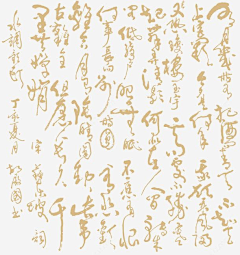 明月幾時有把酒問青天不知天
上宮闕今夕是何年我欲乘風歸
去又恐瓊樓玉宇高處不勝寒
起舞弄清影何似在人間轉朱閣
低綺戶照無眠不應有恨
何事長向別時圓人有悲歡
離合月有陰晴圓缺此事
古難全但願人長久千
里共嬋娟宋蘇東坡詞
水調歌頭丁亥夏月